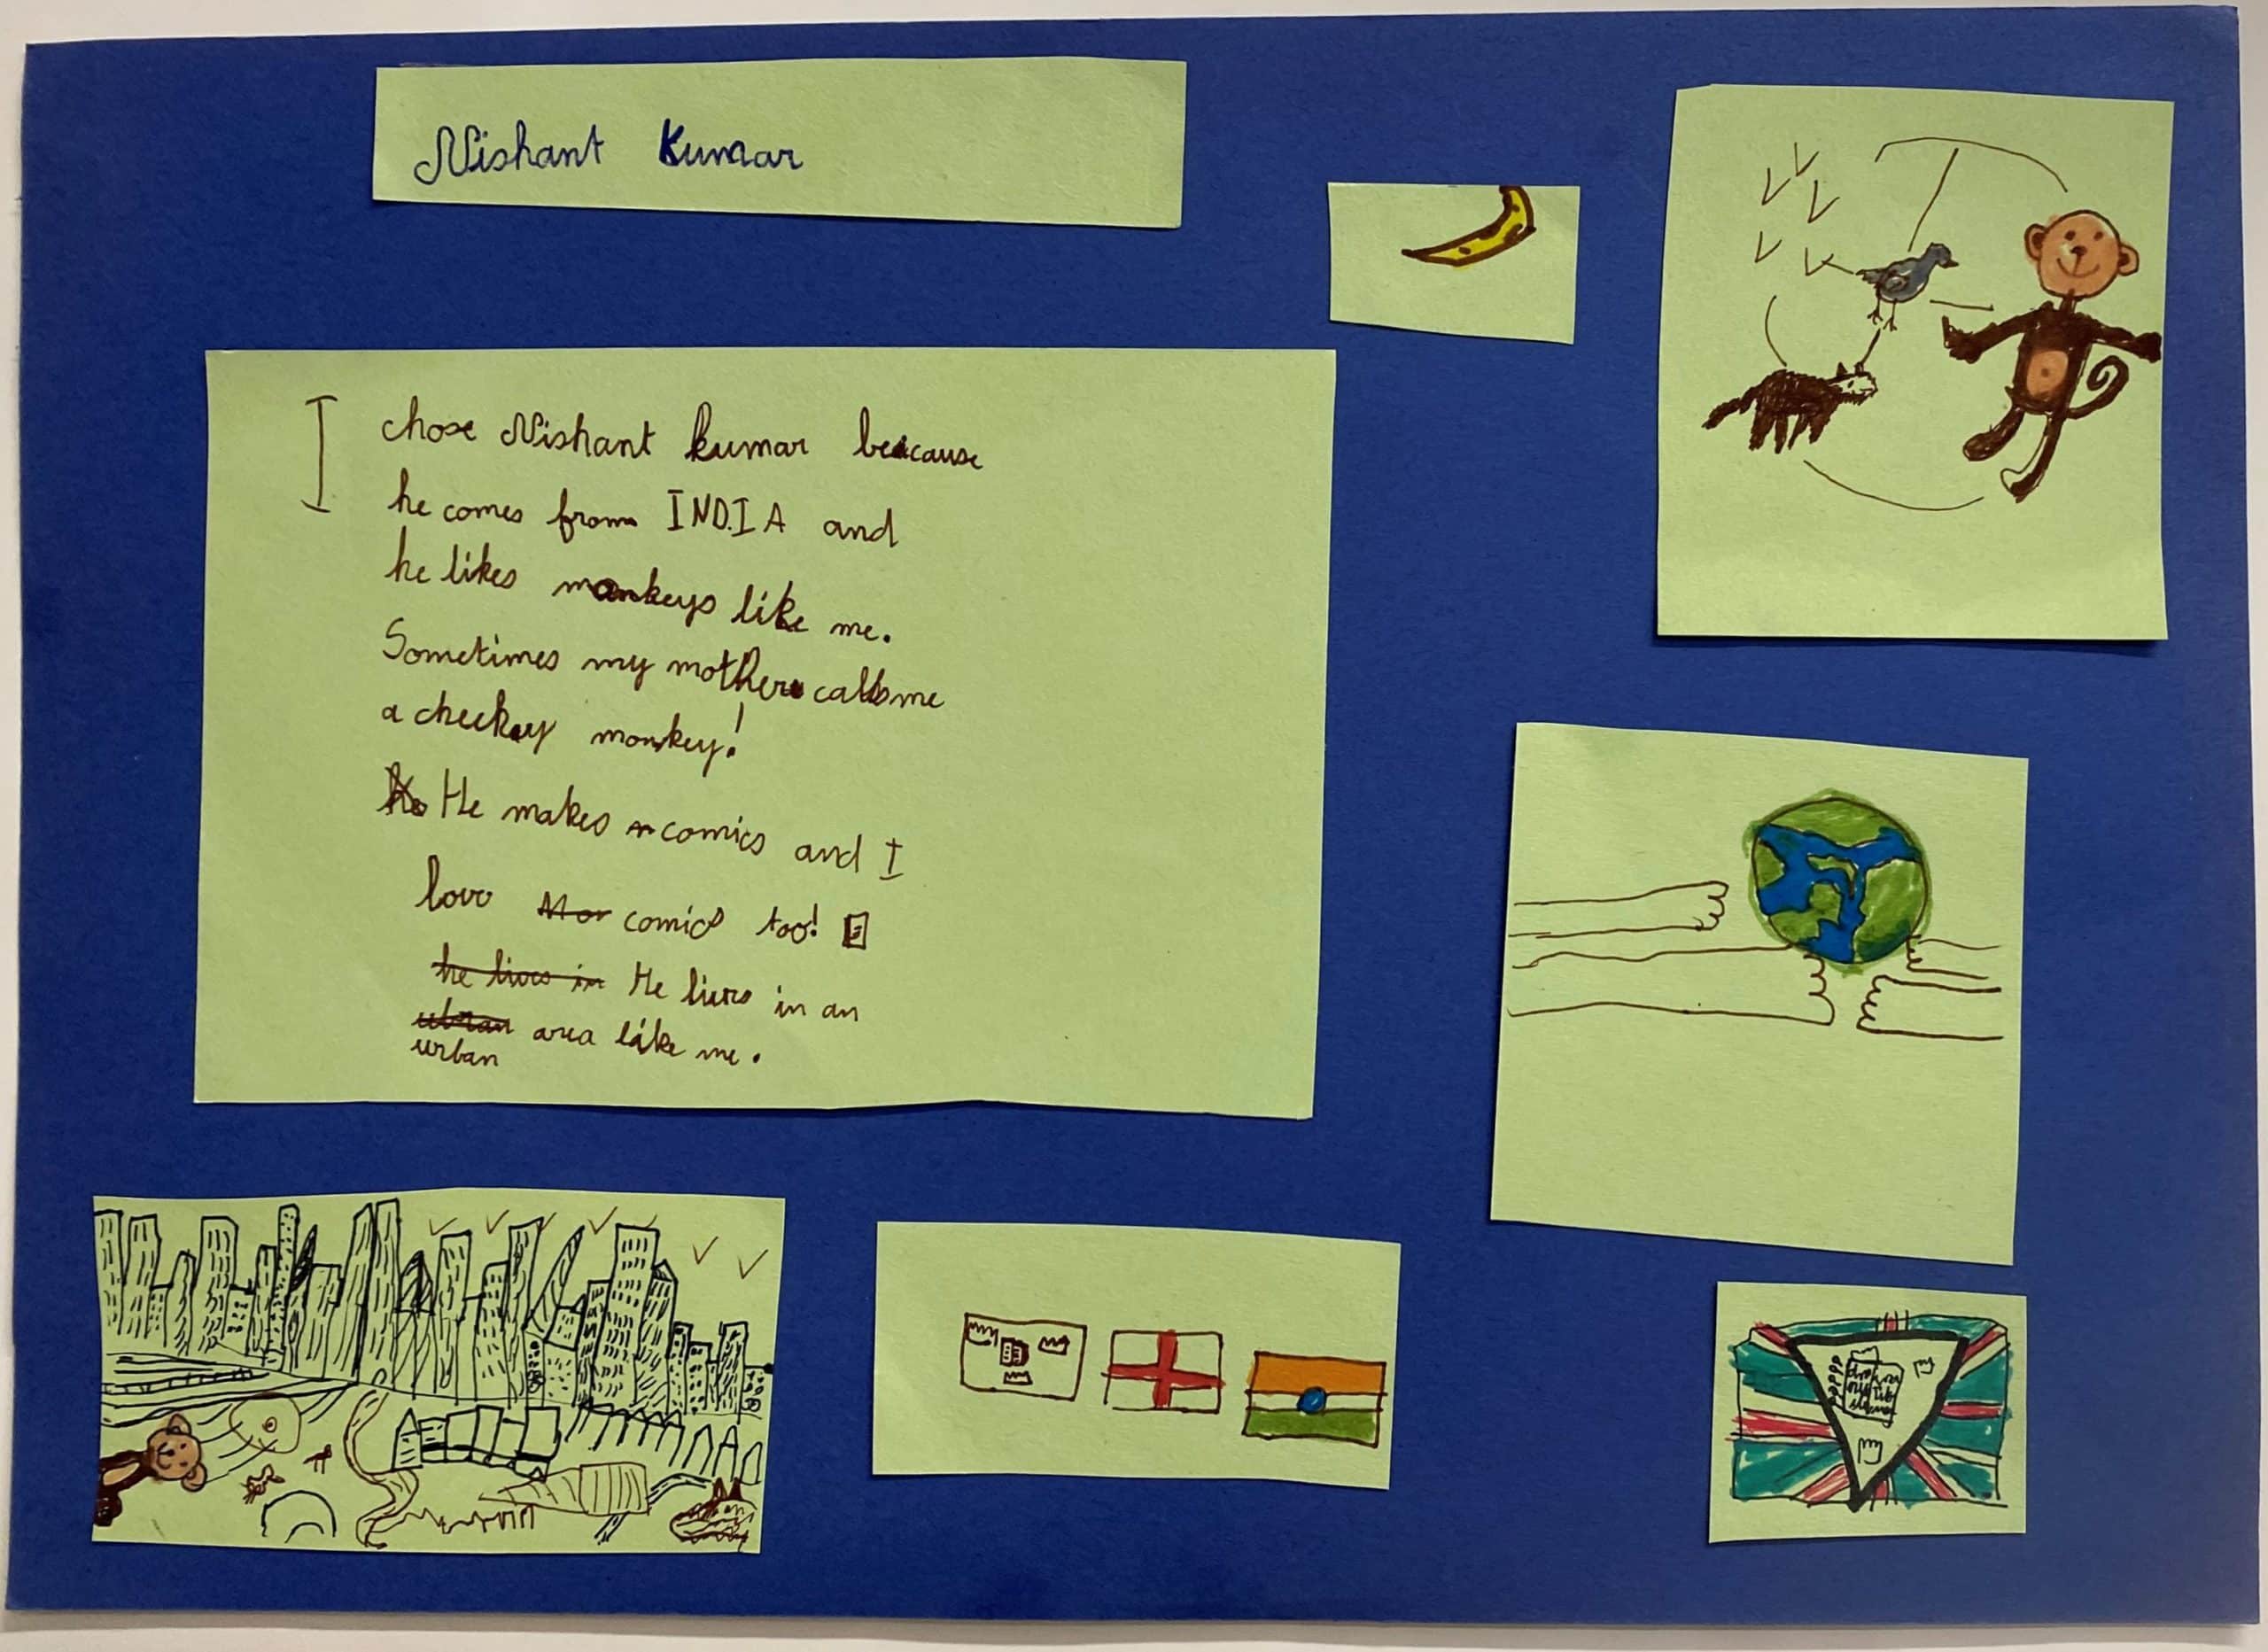 Nishant Kumar
I chose Nishant kumar beacause
he comes from INDIA and
he likes monkeys like me.
Sometimes my mother calls me
a cheekey monkey!
He makes comics and I
love comics too!
he lives in He lives in an
urban area like me.